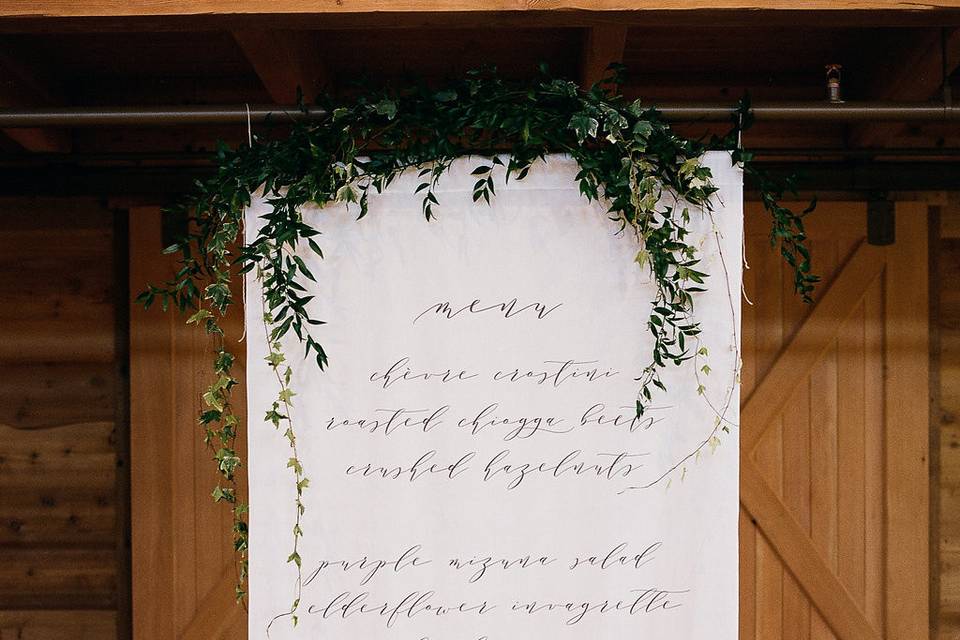 menu
chèvre crostini
roasted chiogga beets
crushed hazelnuts
purple mizuna salad
elderflower invagrette